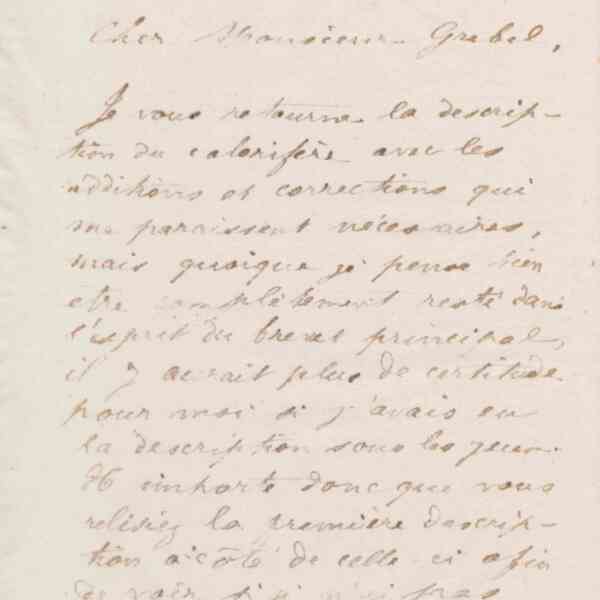 Cher Monsieur Grebel,
Je vous retourne la descrip-
tion du calorifère avec les
additions et corrections qui
me paraissent nécessaires,
mais quoique je pense bien
etre complètement resté dans
l'esprit du brevet principal,
il y aurait plus de certitude
pour moi si j'avais eu
la description sous les yeux.
Il importe donc que vous
relisiez la première descrip-
tion à côté de celle-ci afin
de voir si je n'ai pas